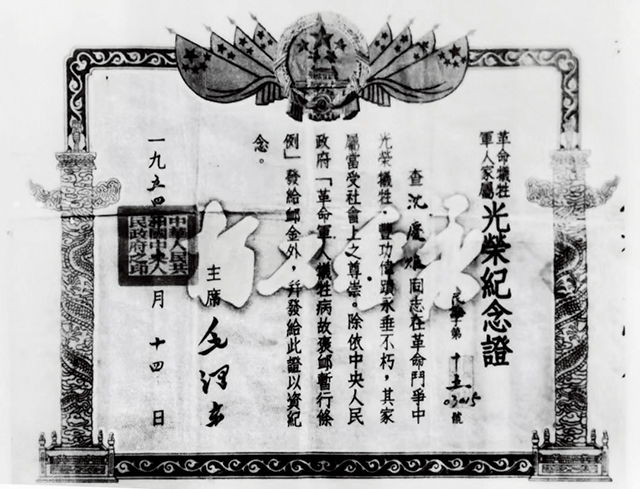 革命犧牲
軍人家屬
光榮紀念證
字第十五03015號
查沈慶同志在革命鬥爭中
光榮犧牲,豐功偉蹟永垂不朽,其家
屬當受社會上之尊崇。除依中央人民
政府「革命軍人犧牲病故褒卹暫行條
例」發給卹金外,幷發給此證以資紀
念。
主席 毛澤東
一九五四 月十四日
中華人民共
和國中央人
民政府之印